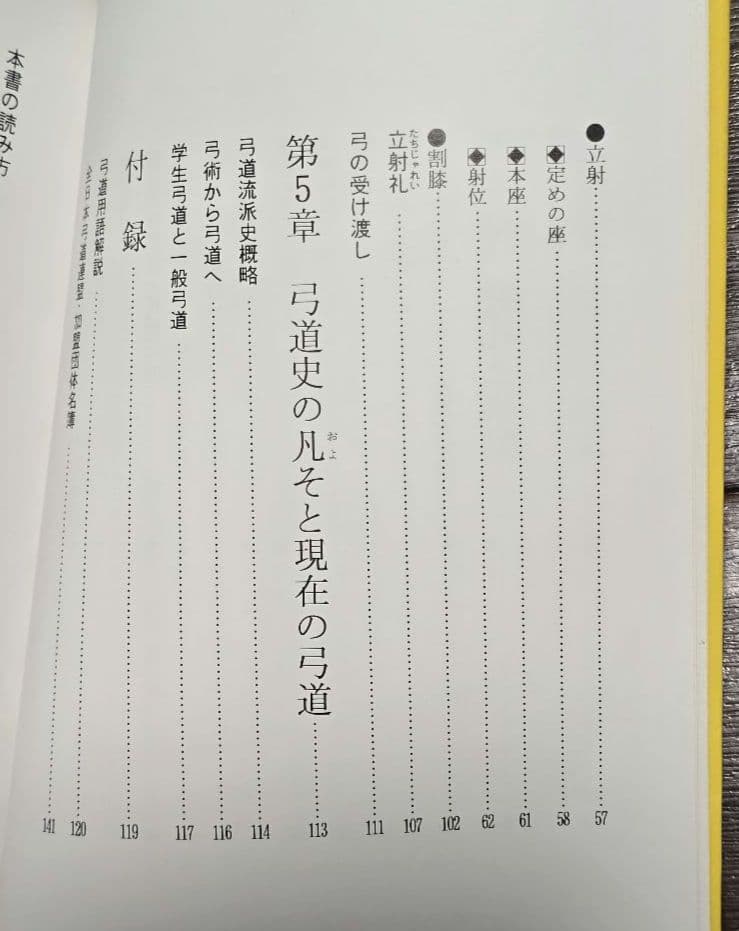 ●立射……57
◆定めの座……58
◆本座……61
◆射位……62
●割膝……102
立射礼……107
たちじゃれい
弓の受け渡し……111
第5章 弓道史の凡そと現在の弓道……113
およ
弓道流派史概略……114
弓術から弓道へ……116
学生弓道と一般弓道……117
付録……119
弓道用語解説……120
全日本弓道連盟・加盟団体名簿……141
本書の読み方